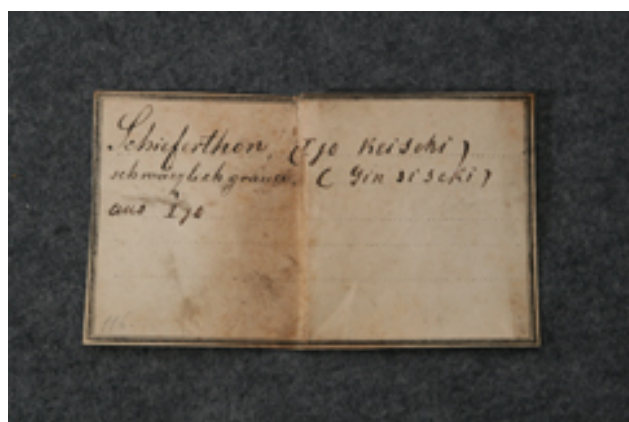 Schieferthon, (Iyo Keiseki)
schwärzlichgrauer, (Gin si seki)
aus Iyo
116